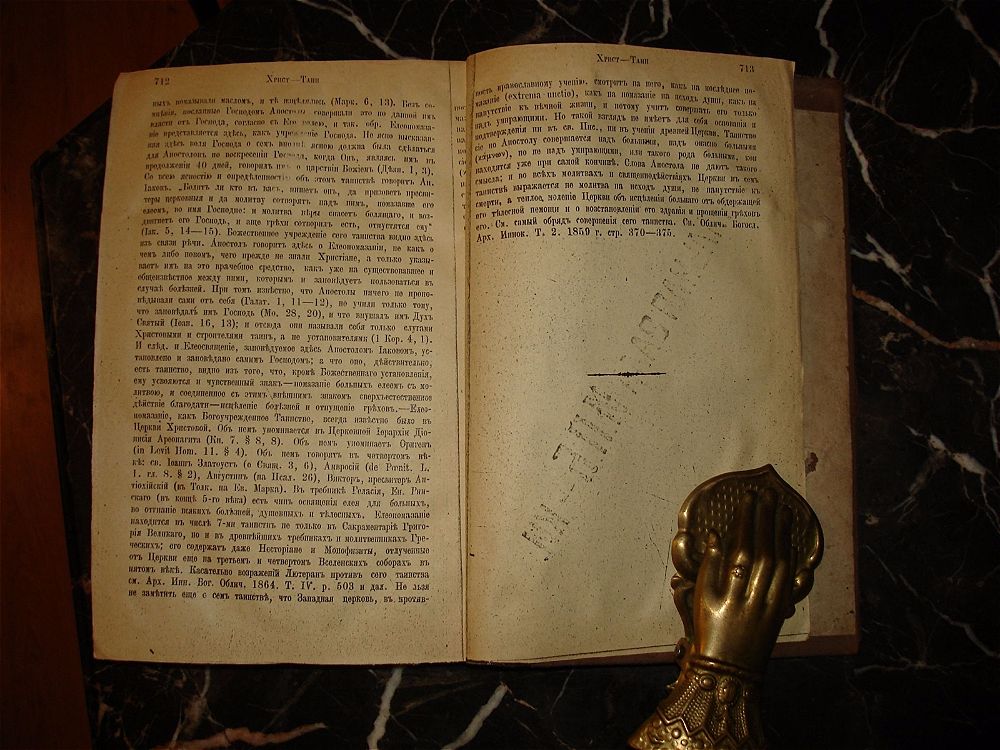 712
Христ—Таин
ныхъ помазывали масломъ, и тѣ исцѣлялись (Марк. 6, 13). Безъ со-
мнѣнія, посланные Господомъ Апостолы совершали это по данной им
власти отъ Господа, согласно съ Его волею, и так. обр. Елеопомаза-
ніе представляется здѣсь, какъ учрежденіе Господа. Не ясно высказан-
ная здѣсь воля Господа о семъ вполнѣ ясною должна была сдѣлаться
для Апостоловъ по воскресеніи Господа, когда Онъ, являясь имъ въ
продолженіи 40 дней, говорилъ имъ о царствіи Божіем (Дѣян. 1, 3).
Со всею ясностію и опредѣленностію объ этомъ таинствѣ говоритъ Ап.
Іаковъ. „Болитъ ли кто въ васъ, пишетъ онъ, да призоветъ пресви-
теры церковныя и да молитву сотворятъ надъ нимъ, помазавше его
елеемъ, во имя Господне: и молитва вѣры спасетъ болящаго, и воз-
двигнетъ его Господь, и аще грѣхи сотворилъ есть, отпустятся ему“
(Іак. 5, 14—15). Божественное учрежденіе сего таинства видно здѣсь
изъ связи рѣчи. Апостолъ говоритъ здѣсь о Елеопомазаніи, не какъ о
чемъ либо новомъ, чего прежде не знали Христіане, а только указы-
ваетъ имъ на это врачебное средство, какъ уже на существовавшее и
общеизвѣстное между ними, которымъ и заповѣдуетъ пользоваться въ
случаѣ болѣзней. При томъ извѣстно, что Апостолы ничего не пропо-
вѣдывали сами отъ себя (Галат. 1, 11—12), но учили только тому,
что заповѣдалъ имъ Господь (Мѳ. 28, 20), и что внушалъ имъ Духъ
Святый (Іоан. 16, 13); и отсюда они называли себя только слугами
Христовыми и строителями таинъ, а не установителями (1 Кор. 4, 1).
И слѣд. и Елеосвященіе, заповѣдуемое здѣсь Апостоломъ Іаковомъ, ус-
тановлено и заповѣдано самимъ Господомъ; а что оно, дѣйствительно,
есть таинство, видно изъ того, что, кромѣ Божественнаго установленія,
ему усвояются и чувственный знакъ—помазаніе больныхъ елеемъ съ мо-
литвою, и соединенное съ этимъ внѣшнимъ знакомъ сверхъестественное
дѣйствіе благодати—исцѣленіе болѣзней и отпущеніе грѣховъ.—Елео-
помазаніе, какъ Богоучрежденное Таинство, всегда извѣстно было въ
Церкви Христовой. Объ немъ упоминается въ Церковной Іерархіи Діо-
нисія Ареопагита (Кн. 7. § 8, 8). Объ немъ упоминаетъ Оригенъ
(in Levit Hom. 11. § 4). Объ немъ говорятъ въ четвертомъ вѣ-
кѣ: св. Іоаннъ Златоустъ (о Свящ. 3, 6), Амвросій (de Penit. L.
1. гл. 8. § 2), Августинъ (на Псал. 26), Викторъ, пресвитеръ Ан-
тіохійскій (въ Толк. на Ев. Марка). Въ требникѣ Геласія, Еп. Рим-
скаго (въ концѣ 5-го вѣка) есть чинъ освященія елея для больныхъ,
во отгнаніе всякихъ болѣзней, душевныхъ и тѣлесныхъ. Елеопомазаніе
находится въ числѣ 7-ми таинствъ не только въ Сакраментаріѣ Григо-
рія Великаго, но и въ древнѣйшихъ требникахъ и молитвенникахъ Гре-
ческихъ; его содержатъ даже Несторіане и Монофизиты, отлученные
отъ Церкви еще на третьемъ и четвертомъ Вселенскихъ соборахъ въ
пятомъ вѣкѣ. Касательно возраженій Лютеранъ противъ сего таинства
см. Арх. Инн. Бог. Облич. 1864. Т. IV. р. 503 и дал. Не льзя
не замѣтить еще о семъ таинствѣ, что Западная церковь, въ против-
Христ—Таин
713
ность православному ученію, смотритъ на него, какъ на послѣднее по-
мазаніе (extrema unctio), какъ на помазаніе на исходъ души, какъ на
напутствіе къ вѣчной жизни, и потому учитъ совершать его только
надъ умирающими. Но такой взглядъ не имѣетъ для себя основанія и
подтвержденія ни въ св. Пис., ни въ ученіи древней Церкви. Таинство
сіе по Апостолу совершается надъ больными, надъ опасно больными
но не надъ умирающими, или такого рода больными, кои
находятся уже при самой кончинѣ. Слова Апостола не даютъ такого
смысла; и во всѣхъ молитвахъ и священнодѣйствіяхъ Церкви въ семъ
таинствѣ выражается не молитва на исходъ души, не напутствіе къ
смерти, а теплое моленіе Церкви объ исцѣленіи больнаго отъ обдержащей
его тѣлесной немощи и о возстановленіи его здравія и прощеніи грѣховъ
его. См. самый обрядъ совершенія сего таинства. Сн. Облич. Богосл.
Арх. Иннок. Т. 2. 1859 г. стр. 370—375.